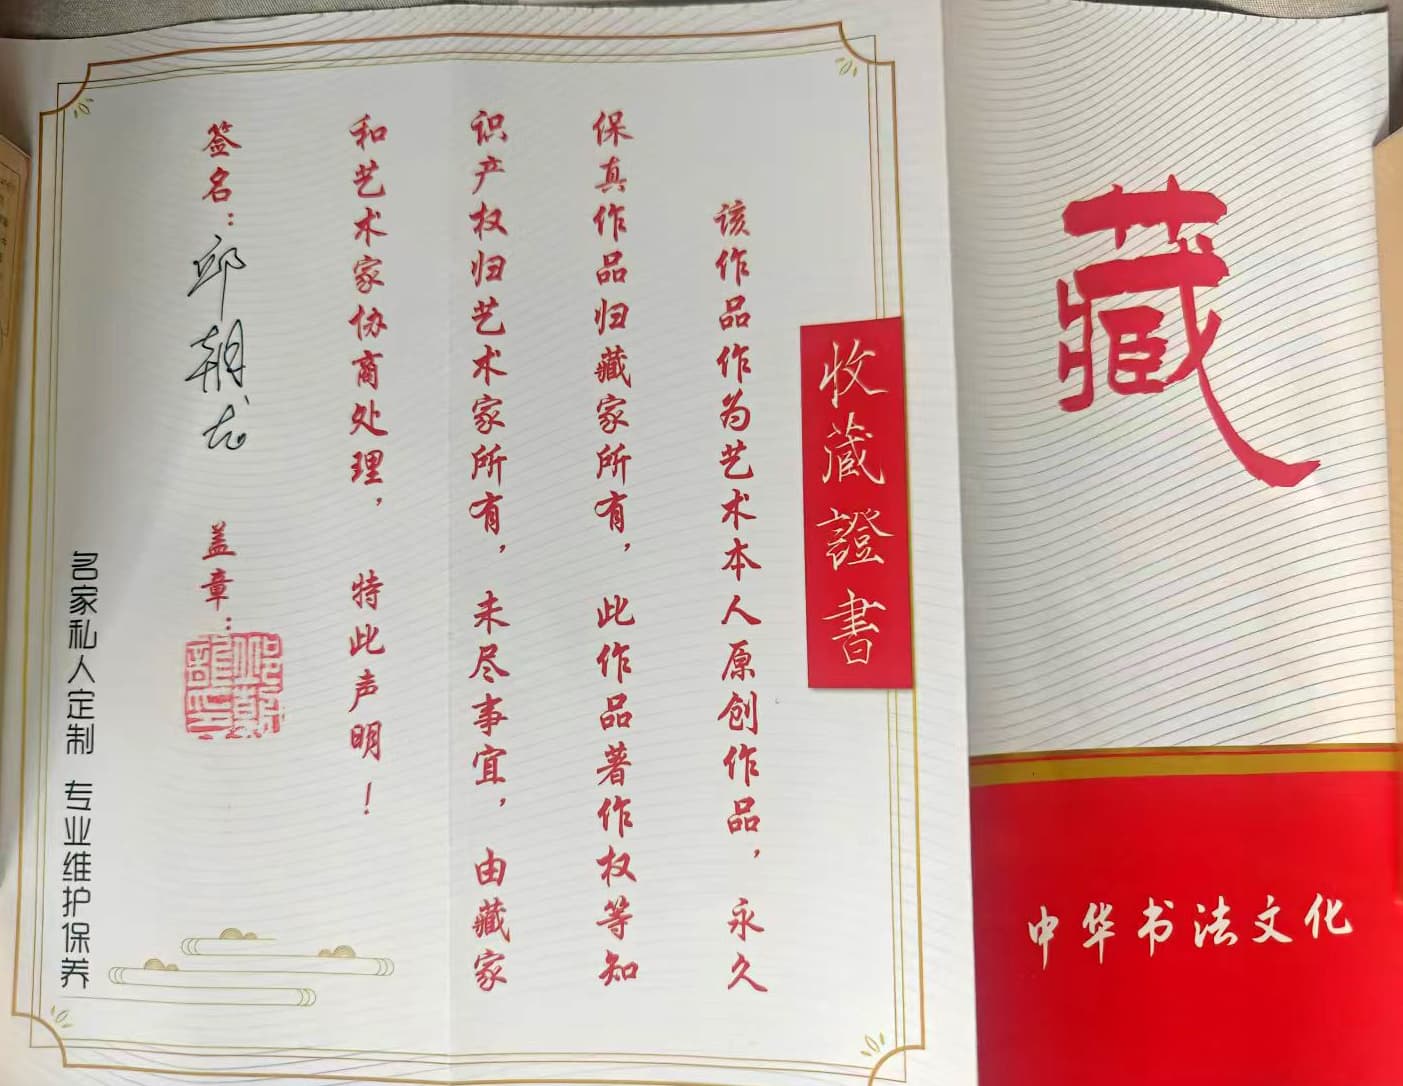 藏
中华书法文化
收藏證書
该作品作为艺术本人原创作品，永久
保真作品归藏家所有，此作品著作权等知
识产权归艺术家所有，未尽事宜，由藏家
和艺术家协商处理，特此声明！
签名：邱朝龙 盖章：
邱朝龍印
名家私人定制 专业维护保养